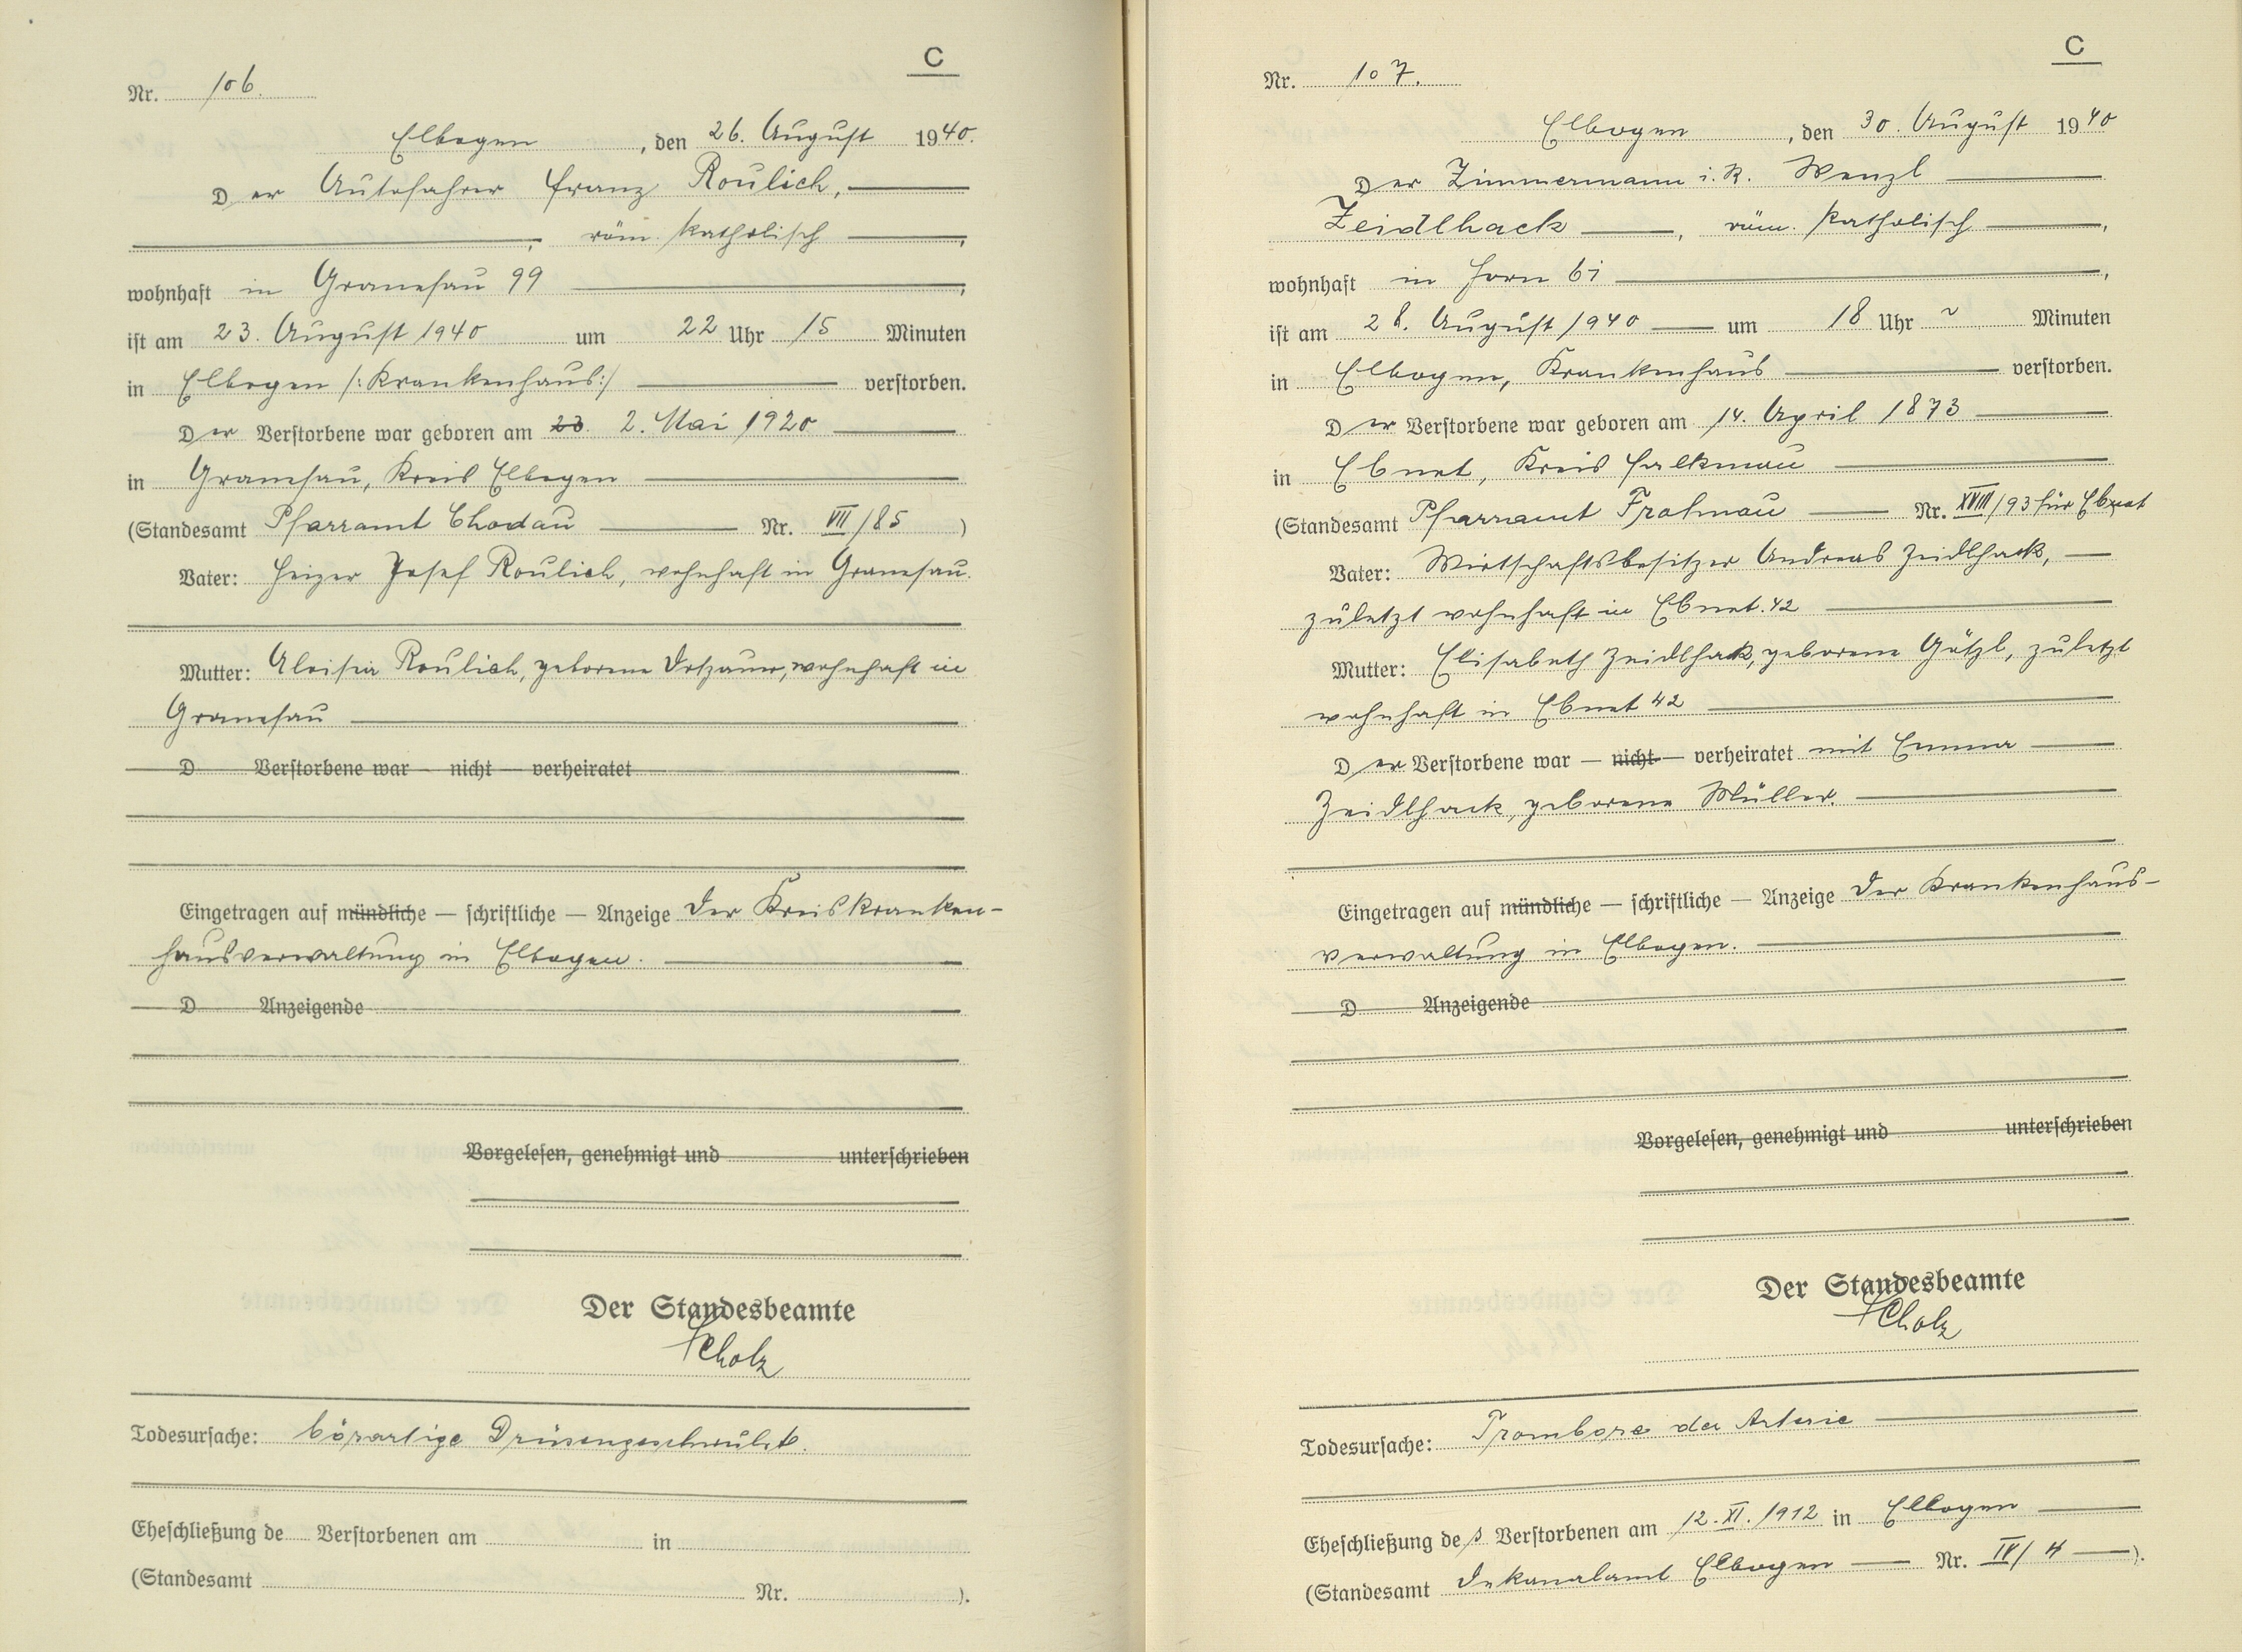 C
Nr. 106.
Elbogen, den 26. August 1940.
Der Autofahrer Franz Roulich,
, röm. katholisch,
wohnhaft in Granesau 99,
ist am 23. August 1940 um 22 Uhr 15 Minuten
in Elbogen /:Krankenhaus:/ verstorben.
Der Verstorbene war geboren am 23. 2. Mai 1920
in Granesau, Kreis Elbogen
(Standesamt Pfarramt Chodau Nr. VII/85)
Vater: Heizer Josef Roulich, wohnhaft in Granesau.
Mutter: Aloisia Roulich, geborene wohnhaft in
Granesau
D Verstorbene war — nicht — verheiratet
Eingetragen auf mündliche — schriftliche — Anzeige der Kreiskranken-
hausverwaltung in Elbogen.
D Anzeigende
Vorgelesen, genehmigt und unterschrieben
Der Standesbeamte
Scholz
Todesursache: bösartige Drüsengeschwulst.
Eheschließung de Verstorbenen am in
(Standesamt Nr. ).
C
Nr. 107.
Elbogen, den 30. August 1940
Der Zimmermann i. R. Wenzl
Zeidlhack, röm. katholisch,
wohnhaft in Horn 61,
ist am 28. August 1940 um 18 Uhr ~ Minuten
in Elbogen, Krankenhaus verstorben.
Der Verstorbene war geboren am 14. April 1873
in Ebnet, Kreis Falkenau
(Standesamt Pfarramt Frohnau Nr. XVIII/93 für Ebnet
Vater: Wirtschaftsbesitzer Andreas Zeidlhack,
zuletzt wohnhaft in Ebnet 42
Mutter: Elisabeth Zeidlhack, geborene Götzl, zuletzt
wohnhaft in Ebnet 42
Der Verstorbene war — nicht — verheiratet mit Emma
Zeidlhack, geborene Müller.
Eingetragen auf mündliche — schriftliche — Anzeige der Krankenhaus-
verwaltung in Elbogen.
D Anzeigende
Vorgelesen, genehmigt und unterschrieben
Der Standesbeamte
Scholz
Todesursache: Trombose der Arterie
Eheschließung des Verstorbenen am 12. XI. 1912 in Elbogen
(Standesamt Dekanalamt Elbogen Nr. IV/4).